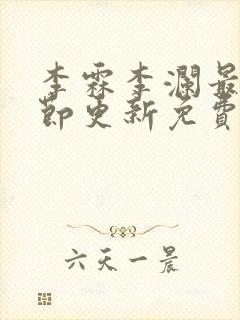 李霖李澜最
节更新免费
六天一晨